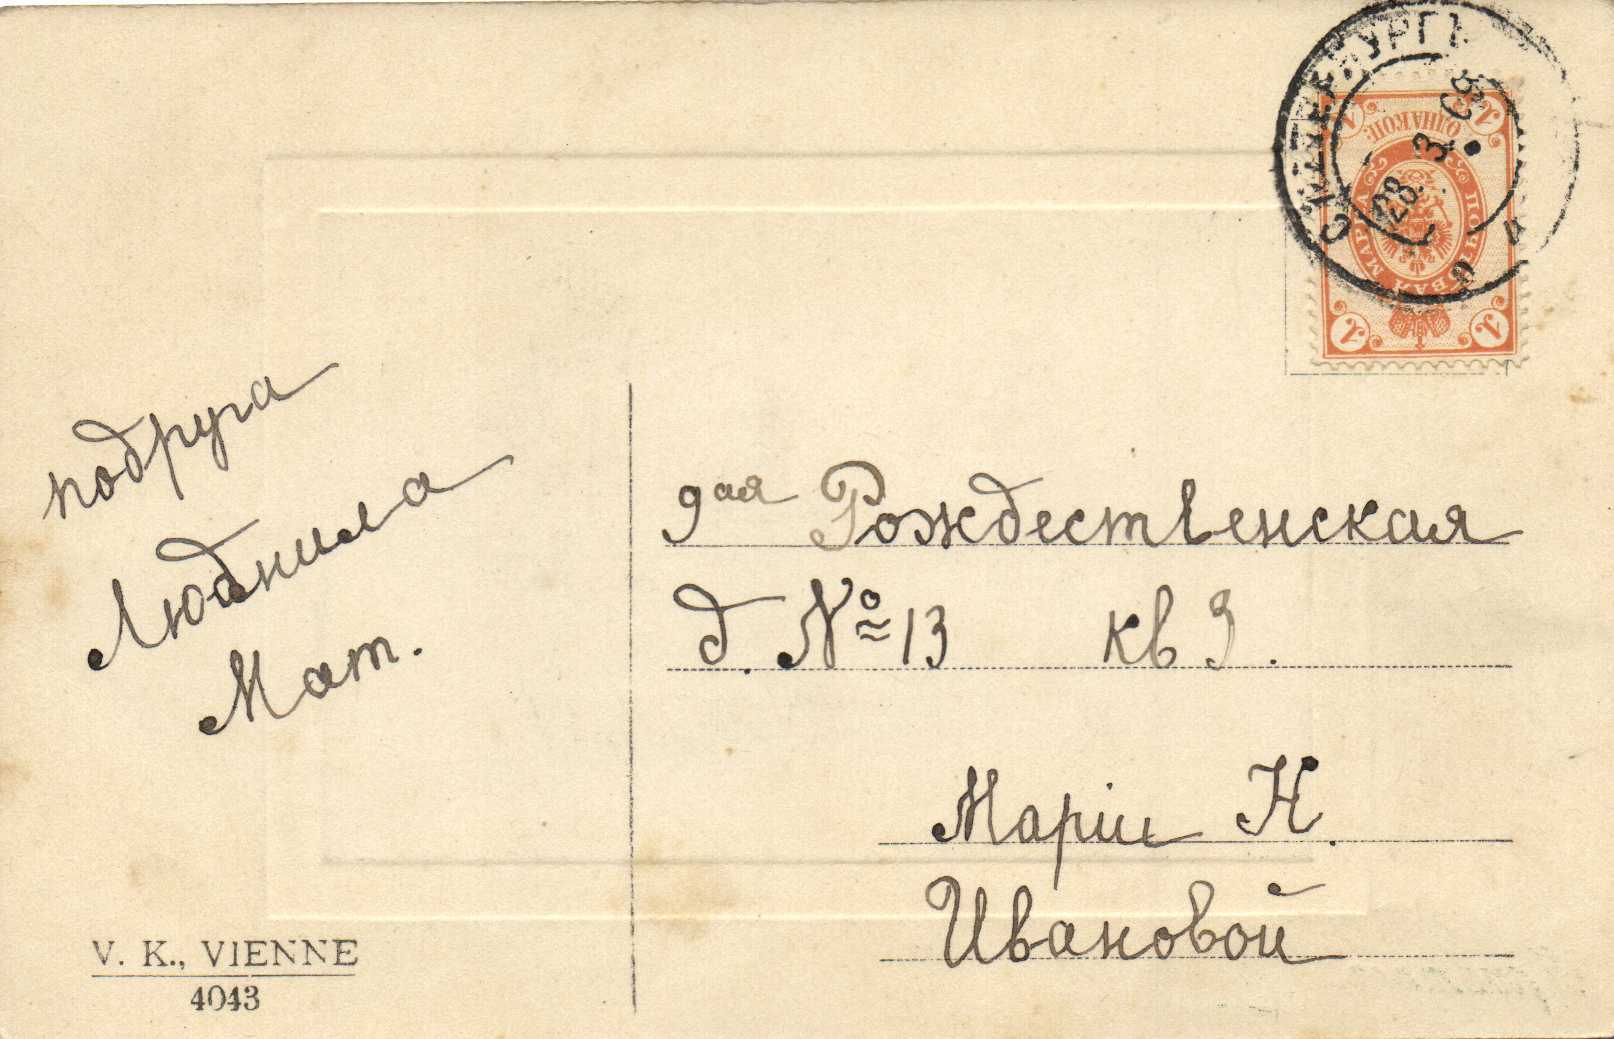 С.ПЕТЕРБУРГЪ
28 3 09
ПОЧТОВАЯ МАРКА
ОДНА КОП.
1 1
1 1
подруга
Людмила
Мат.
9ая Рождественская
д. № 13 кв 9.
Маріи Н.
Ивановой
V. K., VIENNE
4043